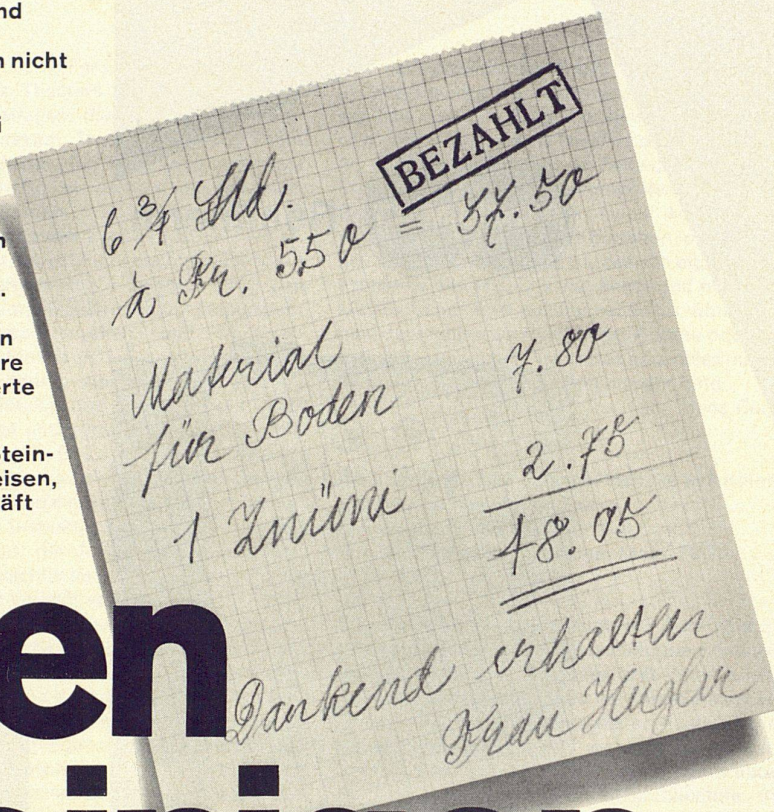 nd
n nicht
i
n
.
n
re
erte
tein-
eisen,
äft
en
BEZAHLT
6 3/4 Std.
à Fr. 5.50 = 37.50
Material
für Boden 7.80
1 Znüni 2.75
48.05
Dankend erhalten
Frau Hugler